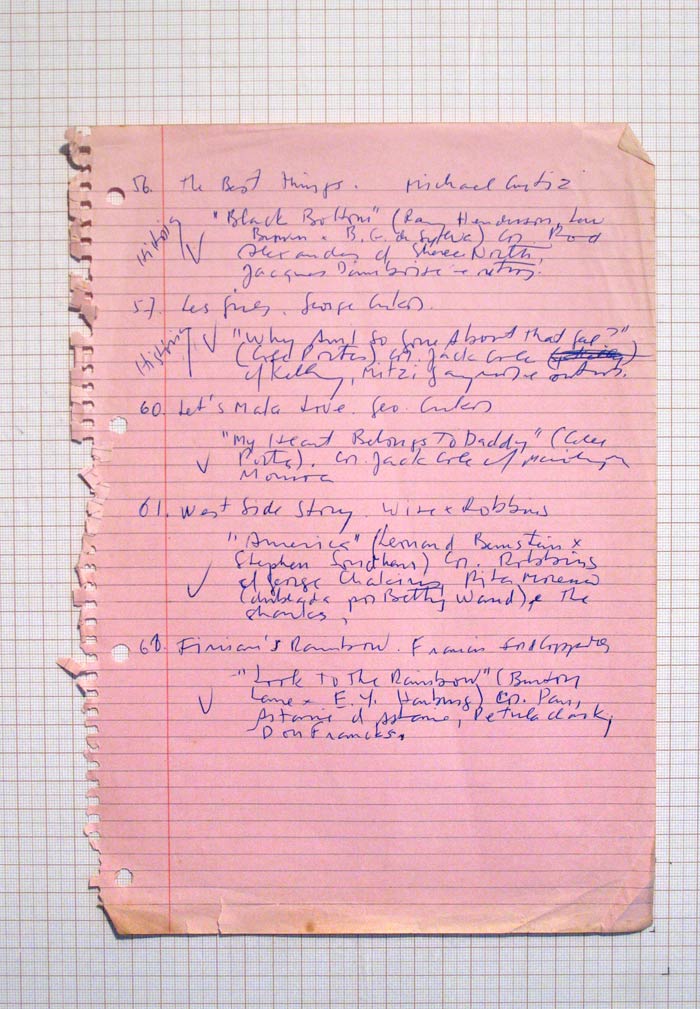 56. The Best Things. Michael Curtiz
"Black Bottom" (Ray Henderson, Lew
Brown × B. G. de Sylva) Cor. Rod
Alexander c/ Sheree North,
Jacques Damboise e outros.
57. Les Girls. George Cukor.
"Why Am I So Gone About That Gal?"
(Cole Porter) Cor. Jack Cole
c/ Kelly, Mitzi Gaynor e outros.
60. Let's Make Love. Geo. Cukor
"My Heart Belongs To Daddy" (Cole
Porter). Cor. Jack Cole c/ Marilyn
Monroe
61. West Side Story. Wise × Robbins
"America" (Leonard Bernstein ×
Stephen Sondheim) Cor. Robbins
c/ George Chakiris, Rita Moreno
(dublada por Betty Wand) e the
sharks.
68. Finian's Rainbow. Francis Ford Coppola
"Look To The Rainbow" (Burton
Lane × E. Y. Harburg) Cor. Pan,
Astaire c/ Astaire, Petula Clark,
Don Francks.